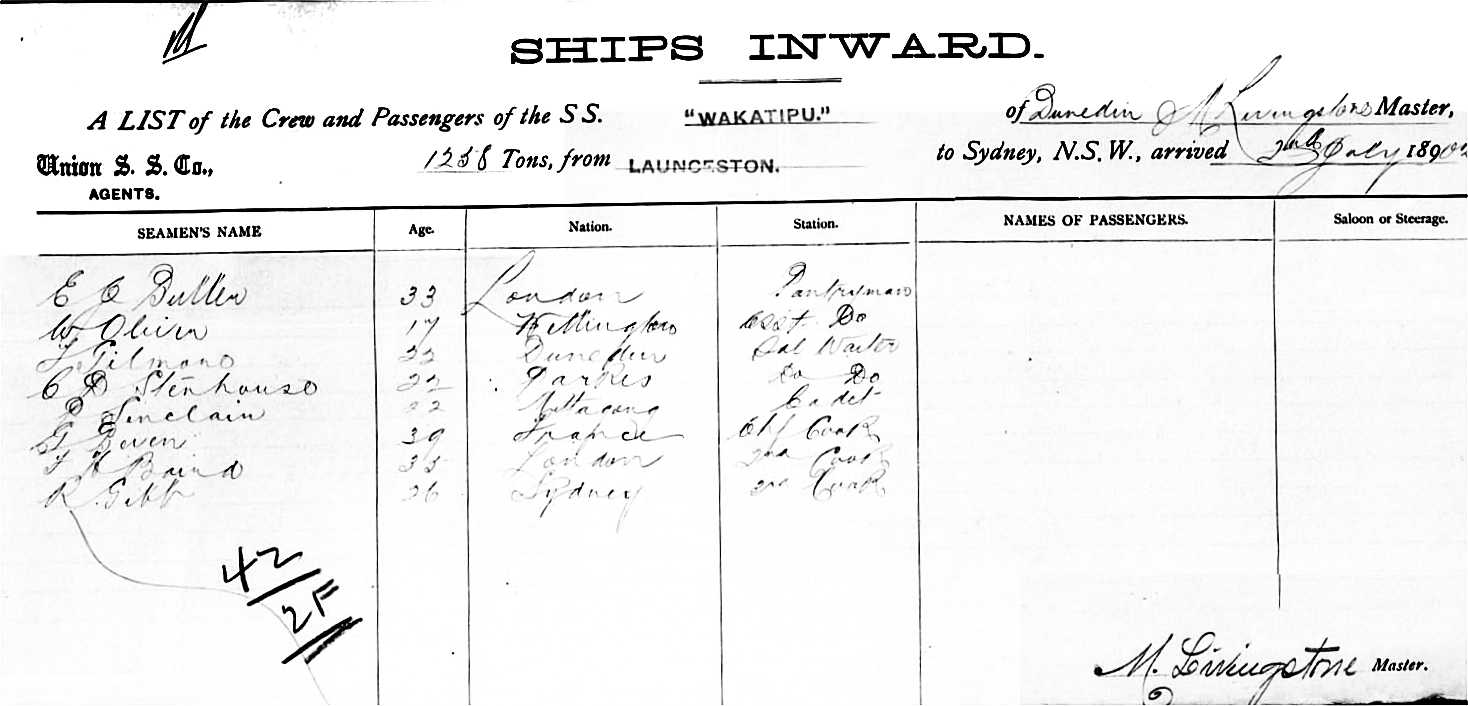 SHIPS INWARD.
A LIST of the Crew and Passengers of the S S. "WAKATIPU." of Dunedin M Livingstone Master,
Union S. S. Co., 1258 Tons, from LAUNCESTON. to Sydney, N.S.W., arrived 2nd July 1890
AGENTS.
SEAMEN'S NAME Age. Nation. Station. NAMES OF PASSENGERS. Saloon or Steerage.
E Butler 33 London Pantryman
W Oliver 17 Wellington Asst Do
Dunedin Sal Waiter
C D Stenhouse 22 Parkes Do Do
Sinclair 22 Mittagong Cadet
G 39 France Chf Cook
Baird London 2nd Cook
R. Gibb 26 Sydney Cook
42
2F
M. Livingstone Master.